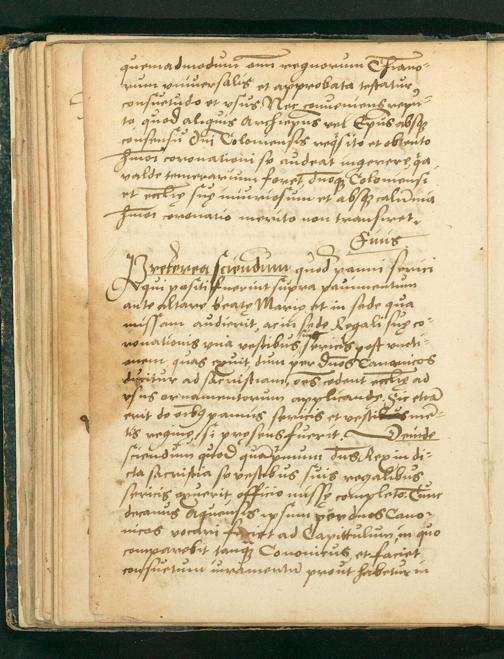 quemadmodum omnium regnorum Christiano-
rum vniuersalis et approbata testatur
consuetudo et vsus Nec conueniens repu-
to, quod aliquis Archiepus vel Epus absq
consensu Dni Coloniensis req̃sito et obtento
hmoi coronationi se audeat ingerere, qa
valde temerarium foret, dnoq Coloniensi
et ecclie sue iniuriosum et absq calumnia
hmoi coronatio merito non transiret.
Finis
Preterea sciendum quod panni serici
qui positi fuerint supra pauimentum
ante altare beate Marie et in sede qua
missam audierit, ac in sede Regali sue co-
ronationis vna vestibus sericis post vncti-
onem quas exuit, dum per dnos Canonicos
ducitur ad sacristiam, oes cedent ecclie ad
vsus ornamentorum applicande. Sic etiã
erit de oibq pannis sericis et vestibus me-
tis regine, si presens fuerit. Deinde
sciendum quod quã primum Dns Rex in di-
cta sacristia se vestibus suis regalibus
sericis exuerit officio misse completo. Tunc
decanus Aquensis ipsum per dnos Cano-
nicos vocari faciet ad Capitulum, in quo
comparebit tanq Canonicus, et faciet
consuetum iuramentũ prout habetur in